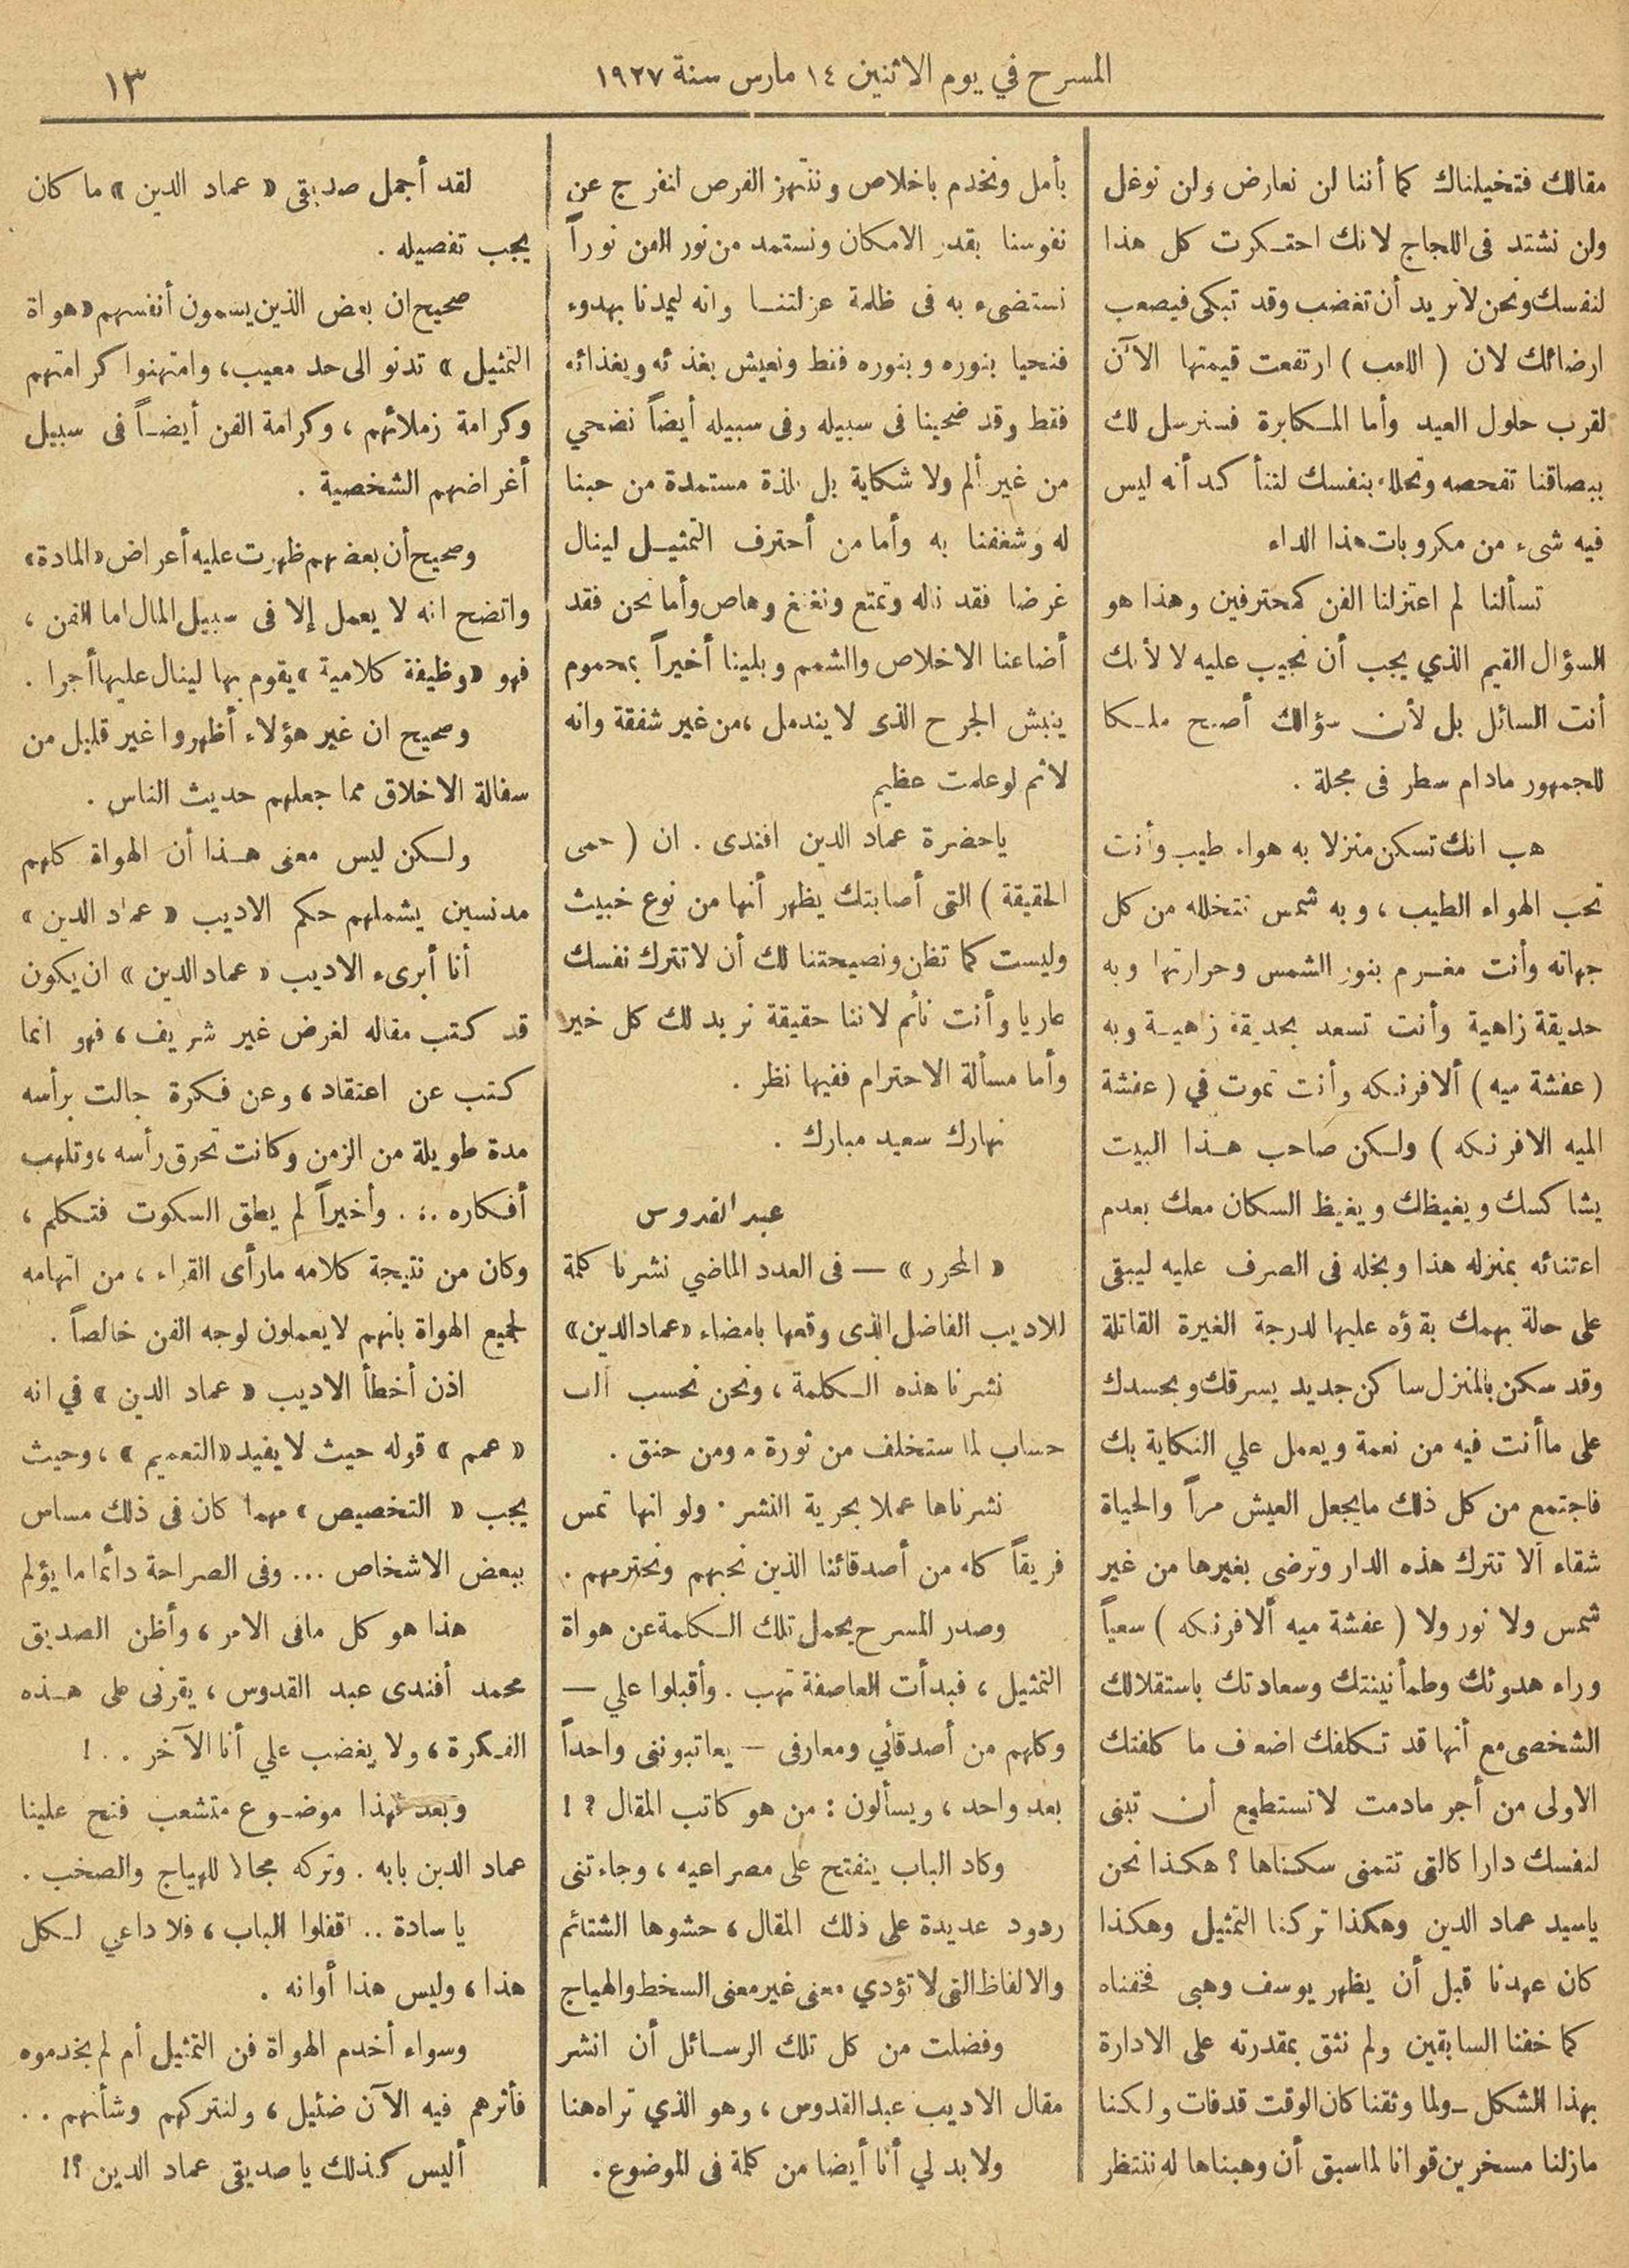 المسرح في يوم الاثنين ١٤ مارس سنة ١٩٢٧
١٣
مقالك فتخيلناك كما أننا لن نعارض ولن نوغل
ولن نشتد فى اللجاج لانك احتكرت كل هذا
لنفسك ونحن لا نريد أن تغضب وقد تبكى فيصعب
ارضائك لان ( اللعب ) ارتفعت قيمتها الآن
لقرب حلول العيد وأما المكابرة فسنرسل لك
ببصاقنا تفحصه وتحلله بنفسك لتتأكد أنه ليس
فيه شىء من مكروبات هذا الداء
تسألنا لم اعتزلنا الفن كمحترفين وهذا هو
السؤال القيم الذي يجب أن نجيب عليه لا لأنك
أنت السائل بل لأن سؤالك أصبح ملكا
للجمهور مادام سطر فى مجلة .
هب انك تسكن منزلا به هواء طيب وأنت
تحب الهواء الطيب ، وبه شمس تتخلله من كل
جهاته وأنت مغرم بنور الشمس وحرارتها وبه
حديقة زاهية وأنت تسعد بحديقة زاهية وبه
( عفشة ميه ) ألافرنكه وأنت تموت في ( عفشة
الميه الافرنكه ) ولكن صاحب هذا البيت
يشاكسك ويغيظك ويغيظ السكان معك بعدم
اعتنائه بمنزله هذا وبخله فى الصرف عليه ليبقى
على حالة يهمك بقؤه عليها لدرجة الغيرة القاتلة
وقد سكن بالمنزل ساكن جديد يسرقك ويحسدك
على ما أنت فيه من نعمة ويعمل علي النكاية بك
فاجتمع من كل ذلك مايجعل العيش مراً والحياة
شقاء ألا تترك هذه الدار وترضى بغيرها من غير
شمس ولا نور ولا ( عفشة ميه ألافرنكه ) سعياً
وراء هدوئك وطمأنينتك وسعادتك باستقلالك
الشخصى مع أنها قد تكلفك اضعاف ما كلفتك
الاولى من أجر مادمت لا تستطيع أن تبنى
لنفسك دارا كالتى تتمنى سكناها ؟ هكذا نحن
ياسيد عماد الدين وهكذا تركنا التمثيل وهكذا
كان عهدنا قبل أن يظهر يوسف وهبى فخفناه
كما خفنا السابقين ولم نثق بمقدرته على الادارة
بهذا الشكل ــ ولما وثقنا كان الوقت قد فات ولكنا
مازلنا مسخرين قوانا لما سبق أن وهبناها له ننتظر
بأمل ونخدم باخلاص وننتهز الفرص لنفرج عن
نفوسنا بقدر الامكان ونستمد من نور الفن نوراً
نستضىء به فى ظلمة عزلتنا وانه ليمدنا بهدوء
فنحيا بنوره وبنوره فقط ونعيش بغذئه وبغذائه
فقط وقد ضحينا فى سبيله وفى سبيله أيضاً نضحي
من غير ألم ولا شكاية بل بلذة مستمدة من حبنا
له وشغفنا به وأما من أحترف التمثيل لينال
غرضا فقد ناله وتمتع ونغنغ وهاص وأما نحن فقد
أضاعنا الاخلاص والشمم وبلينا أخيراً بمحموم
ينبش الجرح الذى لا يندمل ، من غير شفقة وانه
لأثم لو علمت عظيم
ياحضرة عماد الدين افندى . ان ( حمى
الحقيقة ) التى أصابتك يظهر أنها من نوع خبيث
وليست كما تظن ونصيحتنا لك أن لا تترك نفسك
عاريا وأنت نائم لاننا حقيقة نريد لك كل خير
وأما مسألة الاحترام ففيها نظر .
نهارك سعيد مبارك .
عبد القدوس
« المحرر » — فى العدد الماضي نشرنا كلمة
للاديب الفاضل الذى وقعها بامضاء «عماد الدين»
نشرنا هذه الكلمة ، ونحن نحسب ألف
حساب لما ستخلف من ثورة ، ومن حنق .
نشرناها عملا بحرية النشر . ولو انها تمس
فريقاً كله من أصدقائنا الذين نحبهم ونحترمهم .
وصدر المسرح يحمل تلك الكلمة عن هواة
التمثيل ، فبدأت العاصفة تهب . وأقبلوا علي —
وكلهم من أصدقأي ومعارفى — يعاتبوننى واحداً
بعد واحد ، ويسألون : من هو كاتب المقال ؟ !
وكاد الباب ينفتح على مصراعيه ، وجاءتنى
ردود عديدة على ذلك المقال ، حشوها الشتائم
والالفاظ التى لا تؤدي معنى غير معنى السخط والهياج
وفضلت من كل تلك الرسائل أن انشر
مقال الاديب عبد القدوس ، وهو الذي تراه هنا
ولا بد لي أنا أيضا من كلمة فى الموضوع .
لقد أجمل صديقى « عماد الدين » ما كان
يجب تفصيله .
صحيح ان بعض الذين يسمون أنفسهم «هواة
التمثيل » تدنو الى حد معيب ، وامتهنوا كرامتهم
وكرامة زملائهم ، وكرامة الفن أيضاً فى سبيل
أغراضهم الشخصية .
وصحيح أن بعضهم ظهرت عليه أعراض «المادة»
واتضح انه لا يعمل إلا فى سبيل المال اما الفن ،
فهو «وظيفة كلامية » يقوم بها لينال عليها أجرا .
وصحيح ان غير هؤلاء أظهروا غير قليل من
سفالة الاخلاق مما جعلهم حديث الناس .
ولكن ليس معنى هذا أن الهواة كلهم
مدنسين يشملهم حكم الاديب « عماد الدين »
أنا أبرىء الاديب « عماد الدين » ان يكون
قد كتب مقاله لغرض غير شريف ، فهو انما
كتب عن اعتقاد ، وعن فكرة جالت برأسه
مدة طويلة من الزمن وكانت تحرق رأسه ، وتلهب
أفكاره . . . وأخيراً لم يطق السكوت فتكلم ،
وكان من نتيجة كلامه مارأى القراء ، من اتهامه
لجميع الهواة بانهم لا يعملون لوجه الفن خالصاً .
اذن أخطأ الاديب « عماد الدين » في انه
« عمم » قوله حيث لا يفيد «التعميم » ، وحيث
يجب « التخصيص » مهما كان فى ذلك مساس
ببعض الاشخاص ... وفى الصراحة دائما ما يؤلم
هذا هو كل مافى الامر ، وأظن الصديق
محمد أفندى عبد القدوس ، يقرنى على هذه
الفكرة ، ولا يغضب علي أنا الآخر . . !
وبعد فهذا موضوع متشعب فتح علينا
عماد الدين بابه . وتركه مجالا للهياج والصخب .
يا سادة .. اقفلوا الباب ، فلا داعي لكل
هذا ، وليس هذا أوانه .
وسواء أخدم الهواة فن التمثيل أم لم يخدموه
فأثرهم فيه الآن ضئيل ، ولنتركهم وشأنهم . .
أليس كذلك يا صديقى عماد الدين ؟!